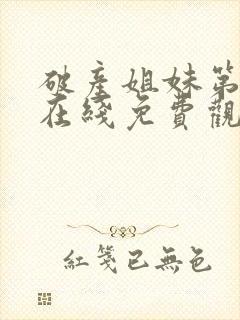 破產姐妹第
在綫免費觀
紅箋已無色